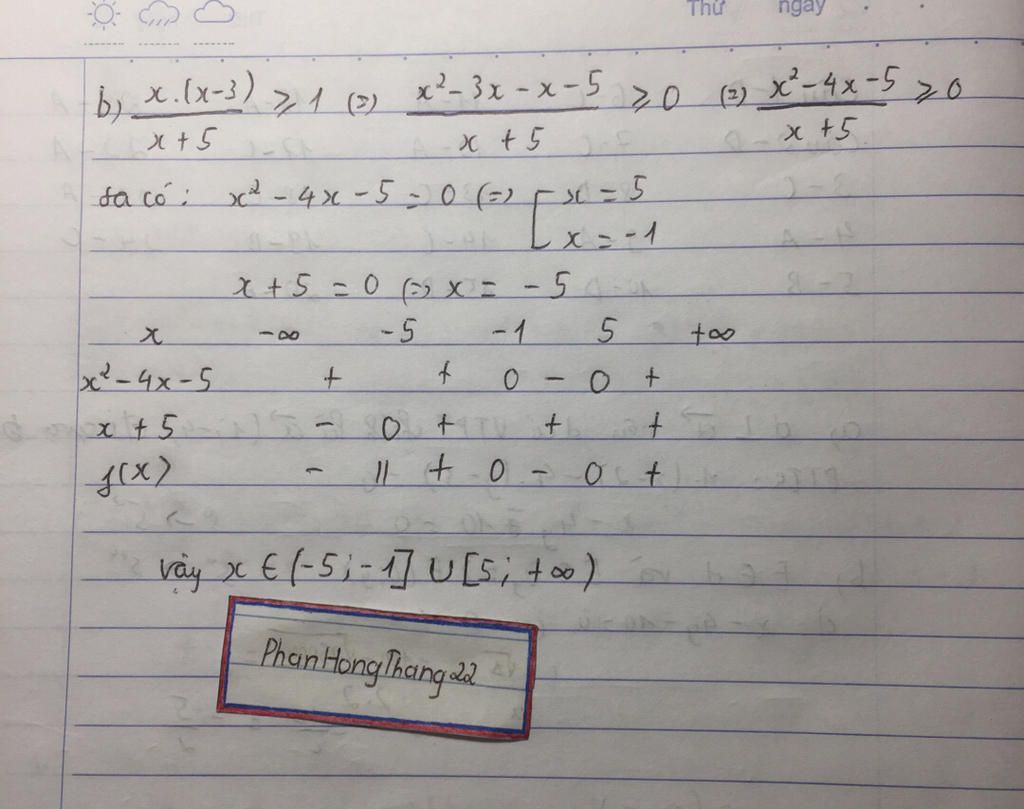 Thứ ngày
b) x.(x-3)/x+5 ⩾ 1 (=) x²-3x-x-5/x+5 ⩾ 0 (=) x²-4x-5/x+5 ⩾ 0
ta có: x²-4x-5=0 (=) [x=5
x=-1
x+5=0 (=) x=-5
x -∞ -5 -1 5 +∞
x²-4x-5 + + 0 - 0 +
x+5 - 0 + + +
f(x) - || + 0 - 0 +
vậy x ∈ (-5;-1] ∪ [5; +∞)
PhanHongThang22